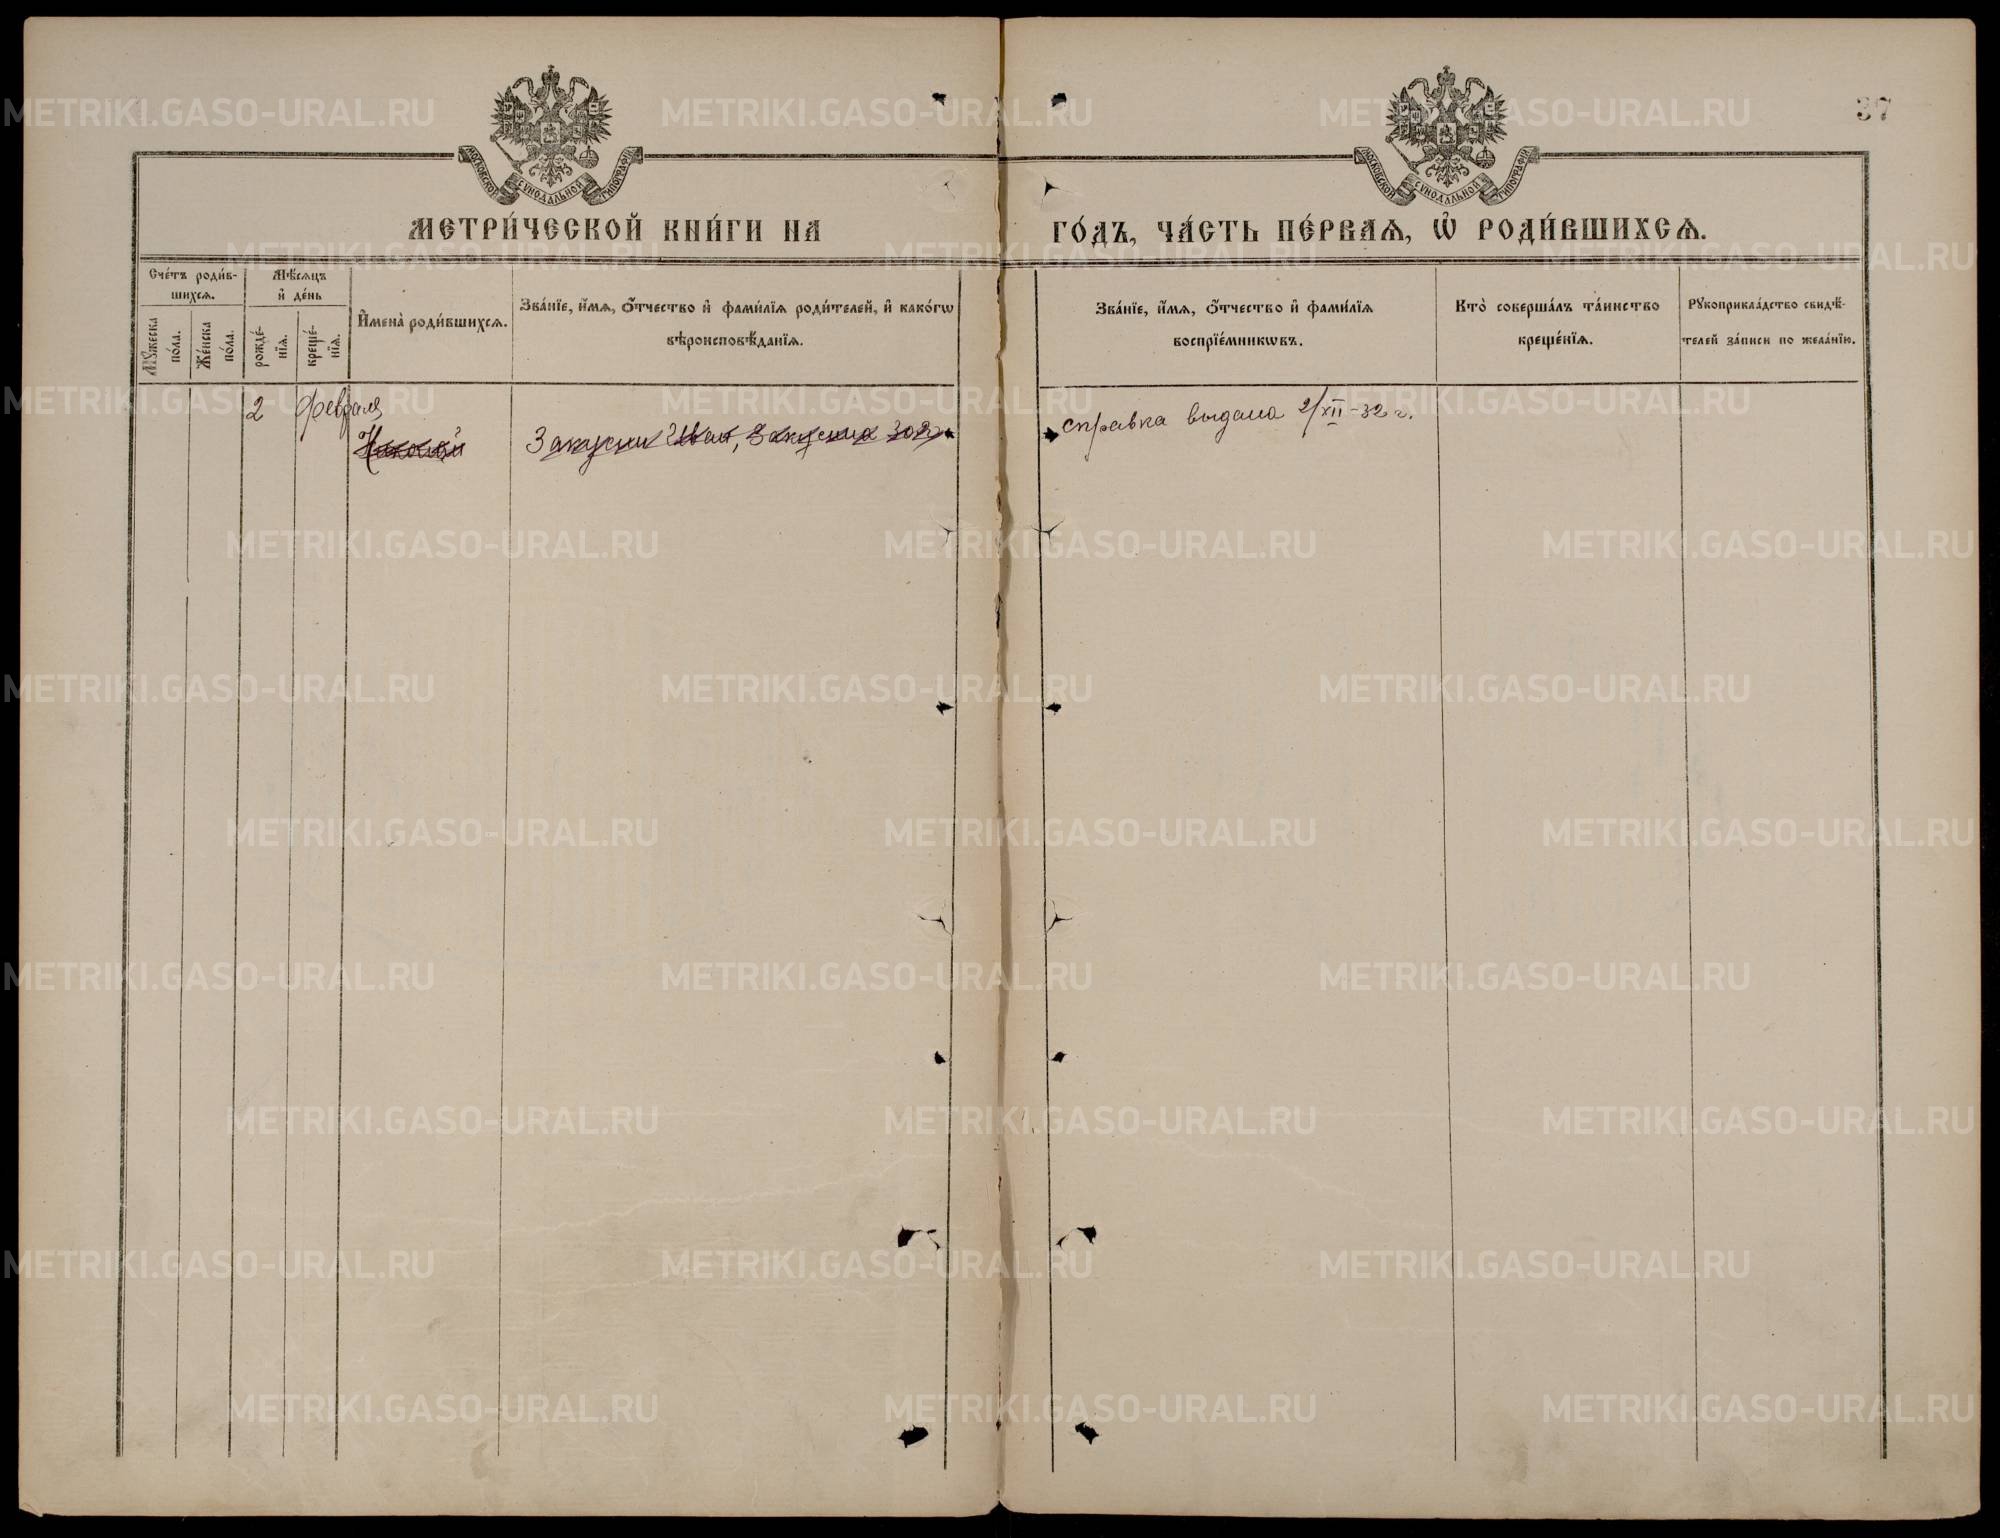 37
МОСКОВСКОЙ СѴНОДАЛЬНОЙ ТИПОГРАФІИ
МОСКОВСКОЙ СѴНОДАЛЬНОЙ ТИПОГРАФІИ
МЕТРИ́ЧЕСКОЙ КНИ́ГИ НА ГО́ДЪ, ЧА́СТЬ ПЕ́РВАѦ, Ѡ҆ РОДИ́ВШИХСѦ.
Сче́тъ роди́в-
шихсѧ.
Мꙋ́жеска
по́ла.
Же́нска
по́ла.
Мѣ́сѧцъ
и҆ де́нь
рожде́-
нїѧ.
креще́-
нїѧ.
И҆мена̀ роди́вшихсѧ.
Зва́нїе, и҆́мѧ, ѻ҆́тчество и҆ фами́лїѧ роди́телей, и҆ како́гѡ
вѣроисповѣ́данїѧ.
Зва́нїе, и҆́мѧ, ѻ҆́тчество и҆ фами́лїѧ
воспрїе́мникѡвъ.
Кто̀ соверша́лъ та́инство
креще́нїѧ.
Рꙋкоприкла́дство свидѣ́-
телей за́писи по жела́нїю.
2 февраля
Николай
Закусин Иван, Закусина
справка выдана 2/XII-32 г.
METRIKI.GASO-URAL.RU